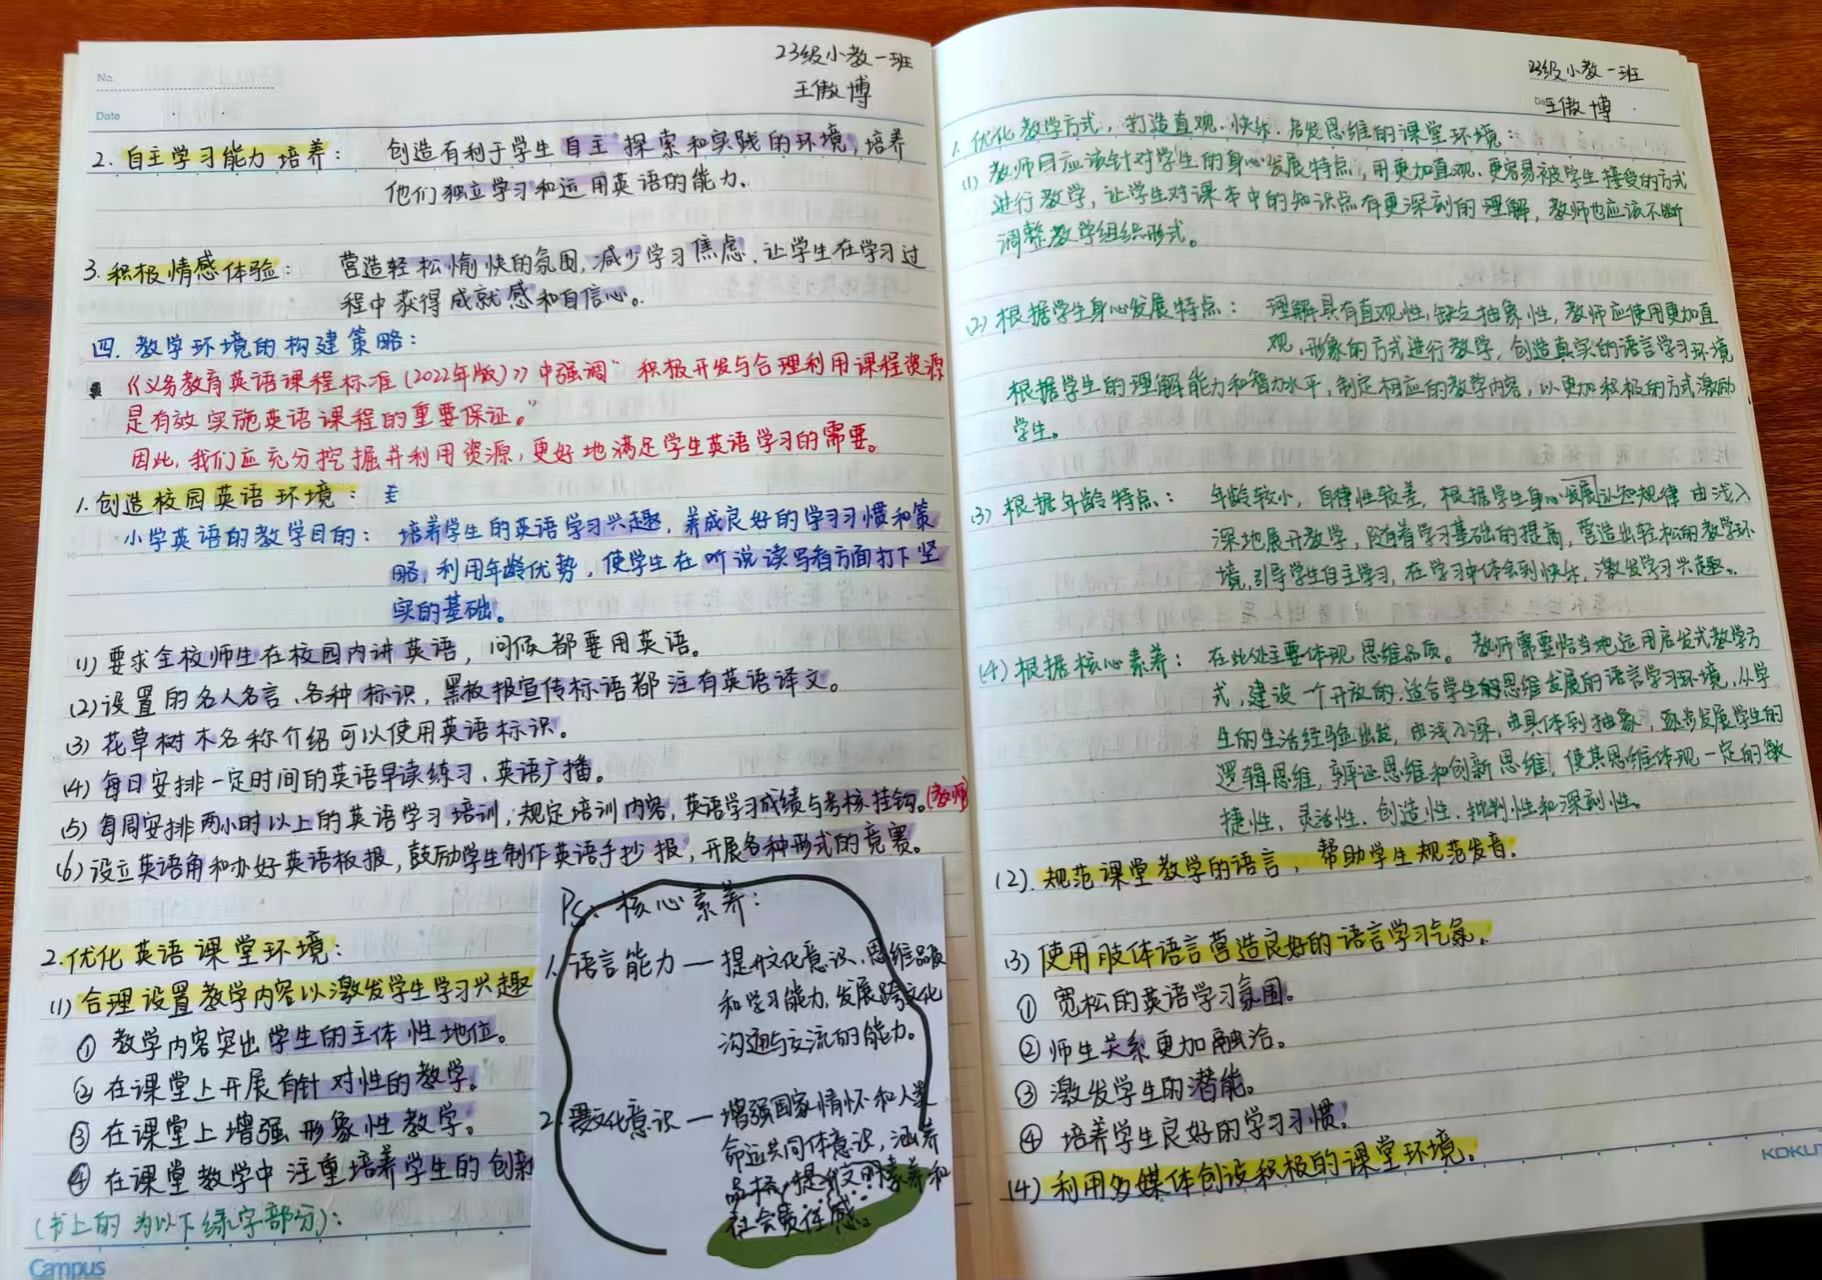 No.
Date
23级小教一班
王傲博
2. 自主学习能力培养： 创造有利于学生自主探索和实践的环境，培养
他们独立学习和运用英语的能力.
3. 积极情感体验： 营造轻松愉快的氛围，减少学习焦虑，让学生在学习过
程中获得成就感和自信心。
四. 教学环境的构建策略：
《义务教育英语课程标准(2022年版)》中强调"积极开发与合理利用课程资源
是有效实施英语课程的重要保证。"
因此，我们应充分挖掘并利用资源，更好地满足学生英语学习的需要。
1. 创造校园英语环境：
小学英语的教学目的： 培养学生的英语学习兴趣，养成良好的学习习惯和策
略，利用年龄优势，使学生在听说读写看方面打下坚
实的基础。
(1) 要求全校师生在校园内讲英语，问候都要用英语。
(2) 设置的名人名言、各种标识，黑板报宣传标语都注有英语译文。
(3) 花草树木名称介绍可以使用英语标识。
(4) 每日安排一定时间的英语早读练习、英语广播。
(5) 每周安排两小时以上的英语学习培训；规定培训内容，英语学习成绩与考核挂钩。(教师)
(6) 设立英语角和办好英语板报，鼓励学生制作英语手抄报，开展各种形式的竞赛。
2. 优化英语课堂环境：
(1) 合理设置教学内容以激发学生学习兴趣
① 教学内容突出学生的主体性地位。
② 在课堂上开展有针对性的教学。
③ 在课堂上增强形象性教学。
④ 在课堂教学中注重培养学生的创新
(书上的为以下绿字部分)：
Campus
Ps：核心素养：
1. 语言能力 — 提升文化意识、思维品质
和学习能力，发展跨文化
沟通与交流的能力。
2. 文化意识 — 增强国家情怀和人类
命运共同体意识，涵养
品格，提升文明素养和
社会责任感。
23级小教一班
王傲博
1. 优化教学方式，打造直观、快乐、启发思维的课堂环境：
(1) 教师应该针对学生的身心发展特点，用更加直观、更容易被学生接受的方式
进行教学，让学生对课本中的知识点有更深刻的理解，教师也应该不断
调整教学组织形式。
(2) 根据学生身心发展特点： 理解具有直观性，缺乏抽象性，教师应使用更加直
观、形象的方式进行教学，创造真实的语言学习环境
根据学生的理解能力和智力水平，制定相应的教学内容，以更加积极的方式激励
学生。
(3) 根据年龄特点： 年龄较小，自律性较差，根据学生身心发展认知规律由浅入
深地展开教学，随着学习基础的提高，营造出轻松的教学环
境，引导学生自主学习，在学习中体会到快乐，激发学习兴趣。
(4) 根据核心素养： 在此处主要体现思维品质。教师需要恰当地运用启发式教学方
式，建设一个开放的、适合学生思维发展的语言学习环境，从学
生的生活经验出发，由浅入深，由具体到抽象，逐步发展学生的
逻辑思维，辩证思维和创新思维，使其思维体现一定的敏
捷性、灵活性、创造性、批判性和深刻性。
(2). 规范课堂教学的语言，帮助学生规范发音.
(3) 使用肢体语言营造良好的语言学习气氛。
① 宽松的英语学习氛围。
② 师生关系更加融洽。
③ 激发学生的潜能。
④ 培养学生良好的学习习惯.
(4) 利用多媒体创设积极的课堂环境.